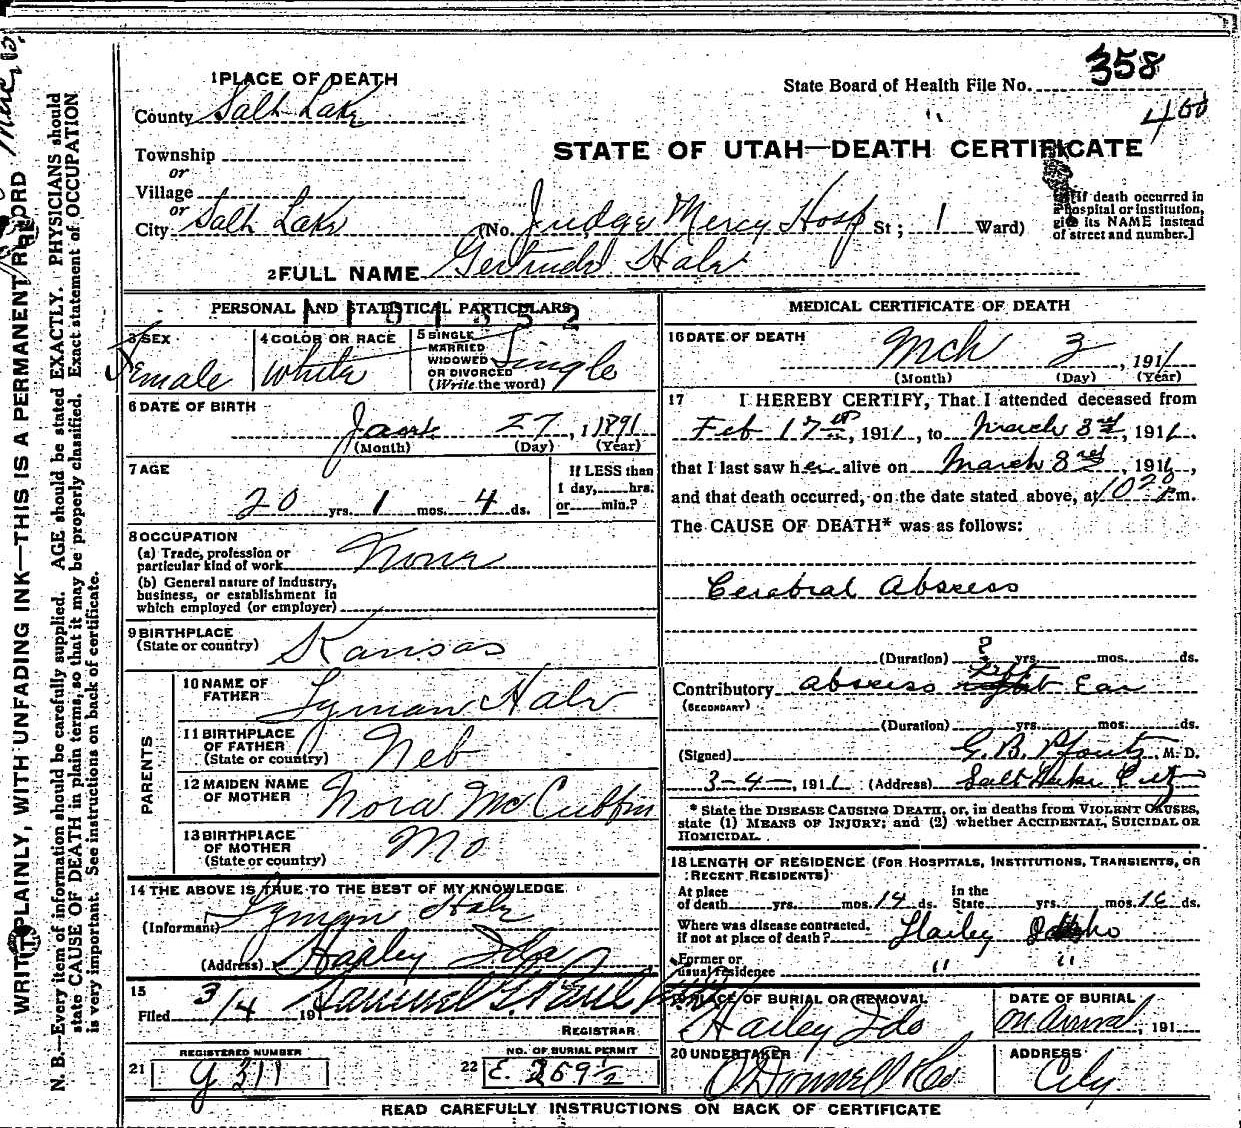 358
1 PLACE OF DEATH
State Board of Health File No.
County Salt Lake
400
Township
or
STATE OF UTAH—DEATH CERTIFICATE
Village
or
City Salt Lake (No. Judge Mercy Hosp St ; 1 Ward)
[If death occurred in
a hospital or institution,
give its NAME instead
of street and number.]
2 FULL NAME Gertrude Hale
PERSONAL AND STATISTICAL PARTICULARS
3 SEX
Female
4 COLOR OR RACE
White
5 SINGLE
MARRIED
WIDOWED
OR DIVORCED
(Write the word)
Single
6 DATE OF BIRTH
Jany 27, 1891
(Month) (Day) (Year)
7 AGE
20 yrs. 1 mos. 4 ds.
If LESS than
1 day, hrs.
or min.?
8 OCCUPATION
(a) Trade, profession or
particular kind of work None
(b) General nature of industry,
business, or establishment in
which employed (or employer)
9 BIRTHPLACE
(State or country) Kansas
PARENTS
10 NAME OF
FATHER Lyman Hale
11 BIRTHPLACE
OF FATHER
(State or country) Neb
12 MAIDEN NAME
OF MOTHER Nora McCubbin
13 BIRTHPLACE
OF MOTHER
(State or country) Mo
14 THE ABOVE IS TRUE TO THE BEST OF MY KNOWLEDGE
(Informant) Lyman Hale
(Address) Hailey Ida
15
Filed 3/4 191 Samuel G. Paul
REGISTRAR
REGISTERED NUMBER
21 G 311
NO. OF BURIAL PERMIT
22 E. 269½
MEDICAL CERTIFICATE OF DEATH
16 DATE OF DEATH
Mch 3, 1911
(Month) (Day) (Year)
17 I HEREBY CERTIFY, That I attended deceased from
Feb 17th, 1911, to March 3rd, 1911,
that I last saw her alive on March 3rd, 1911,
and that death occurred, on the date stated above, at 10 20 P m.
The CAUSE OF DEATH* was as follows:
Cerebral Abscess
(Duration) ? yrs. mos. ds.
Contributory abscess left Ear
(SECONDARY)
(Duration) yrs. mos. ds.
(Signed) G. B. Pfoutz M. D.
3-4-, 1911 (Address) Salt Lake City
* State the DISEASE CAUSING DEATH, or, in deaths from VIOLENT CAUSES,
state (1) MEANS OF INJURY; and (2) whether ACCIDENTAL, SUICIDAL OR
HOMICIDAL.
18 LENGTH OF RESIDENCE (FOR HOSPITALS, INSTITUTIONS, TRANSIENTS, OR
RECENT RESIDENTS)
At place
of death yrs. mos. 14 ds.
In the
State yrs. mos. 16 ds.
Where was disease contracted,
if not at place of death? Hailey Idaho
Former or
usual residence " "
19 PLACE OF BURIAL OR REMOVAL
Hailey Ido
DATE OF BURIAL
On Arrival, 191
20 UNDERTAKER
O'Donnell & Co
ADDRESS
City
READ CAREFULLY INSTRUCTIONS ON BACK OF CERTIFICATE
WRITE PLAINLY, WITH UNFADING INK—THIS IS A PERMANENT RECORD
N. B.—Every item of information should be carefully supplied. AGE should be stated EXACTLY. PHYSICIANS should
state CAUSE OF DEATH in plain terms, so that it may be properly classified. Exact statement of OCCUPATION
is very important. See instructions on back of certificate.